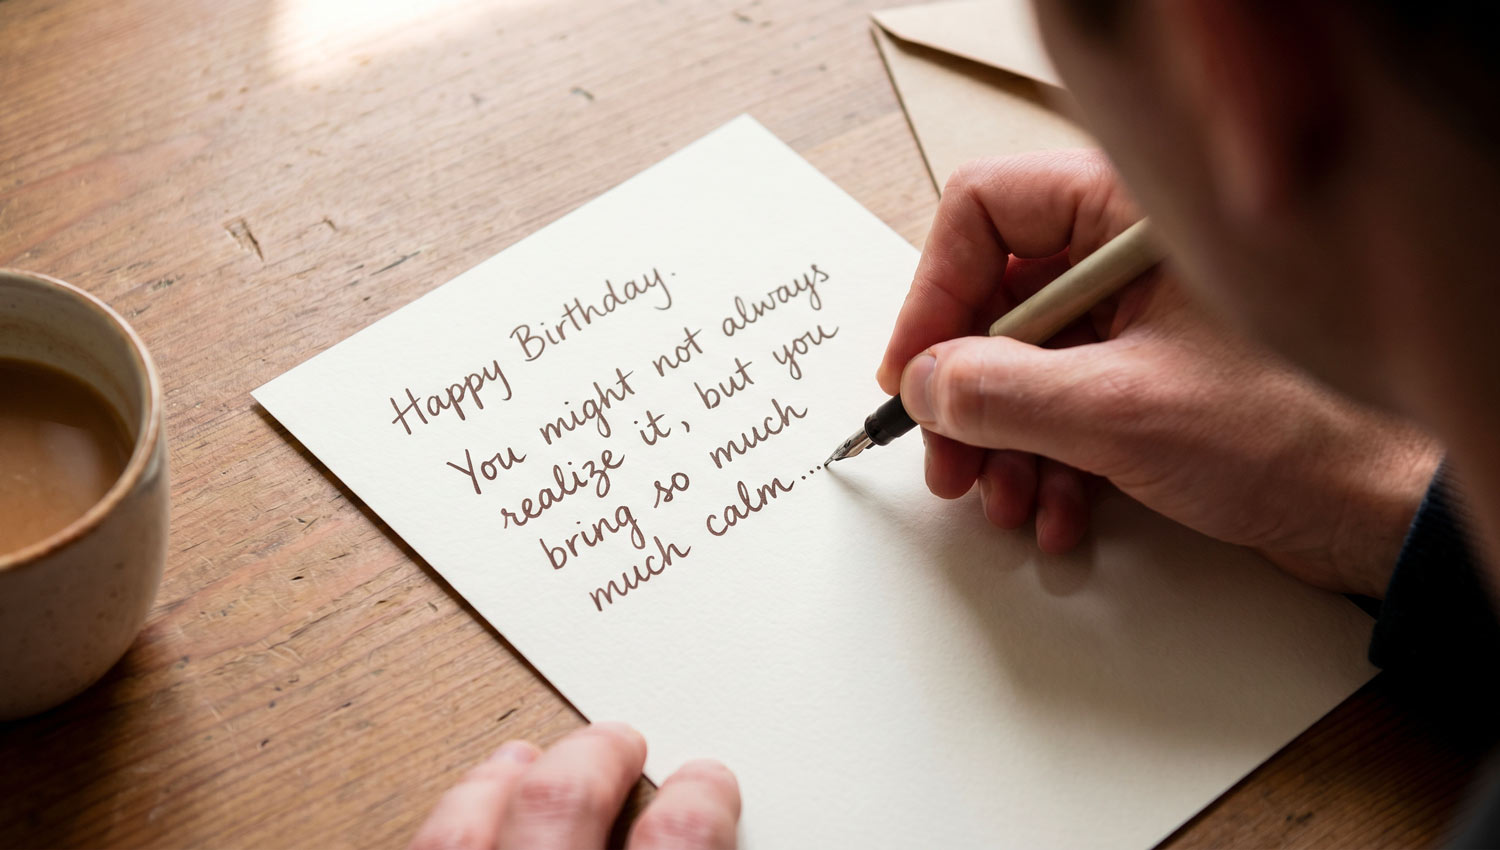 Happy Birthday.
You might not always
realize it, but you
bring so much
much calm....